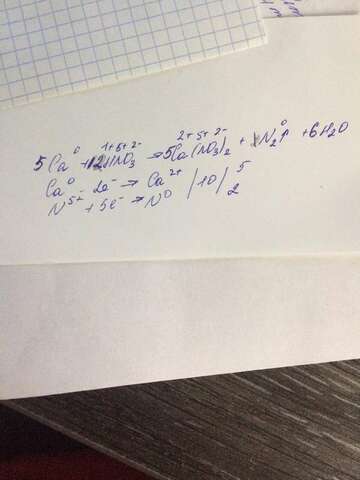 5Ca⁰ + 12H¹⁺N⁵⁺O₃²⁻ → 5Ca²⁺(N⁵⁺O₃²⁻)₂ + N₂⁰↑ + 6H₂O
Ca⁰ - 2e⁻ → Ca²⁺ | 10 | 5
N⁵⁺ + 5e⁻ → N⁰ 2